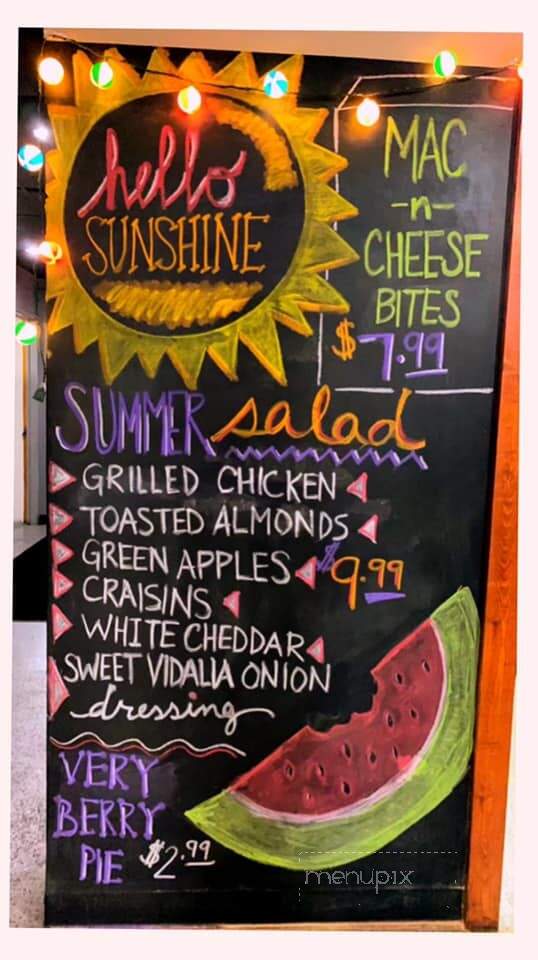 hello
SUNSHINE
MAC
-n-
CHEESE
BITES
$7.99
SUMMER salad
GRILLED CHICKEN
TOASTED ALMONDS
GREEN APPLES
$9.99
CRAISINS
WHITE CHEDDAR
SWEET VIDALIA ONION
dressing
VERY
BERRY
PIE $2.99
menupix